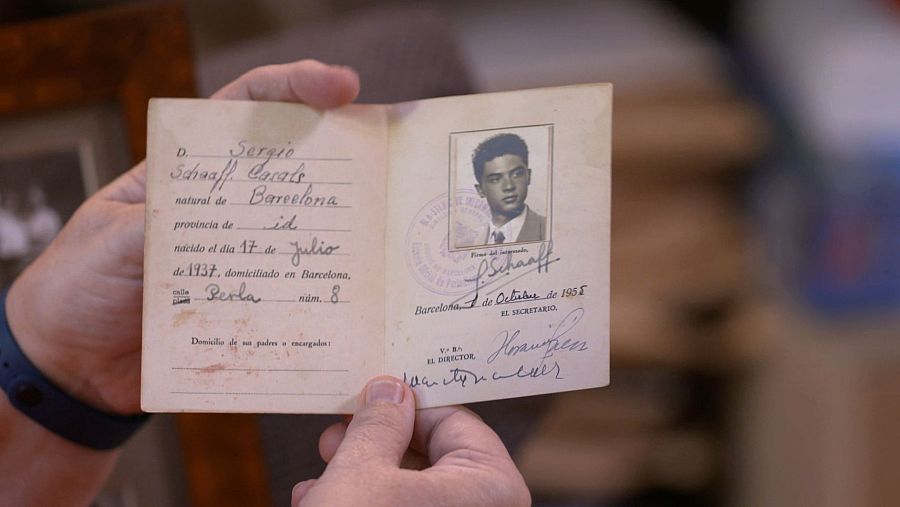 D. Sergio
Schaaff Casals
natural de Barcelona
provincia de id
nacido el día 17 de Julio
de 1937, domiciliado en Barcelona,
calle
plaza
Perla núm. 8
Domicilio de sus padres o encargados:
Firma del interesado,
S. Schaaff
Barcelona, 1 de Octubre de 1955
EL SECRETARIO,
V.º B.º:
EL DIRECTOR,